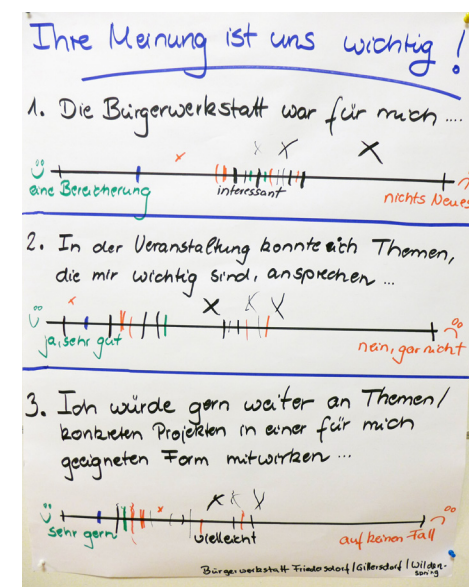 Ihre Meinung ist uns wichtig!
1. Die Bürgerwerkstatt war für mich ....
eine Bereicherung
interessant
nichts Neues
2. In der Veranstaltung konnte ich Themen,
die mir wichtig sind, ansprechen ...
ja, sehr gut
nein, gar nicht
3. Ich würde gern weiter an Themen/
konkreten Projekten in einer für mich
geeigneten Form mitwirken ...
sehr gern
vielleicht
auf keinen Fall
Bürgerwerkstatt Friedesdorf/Gillersdorf/Wilden-
spring